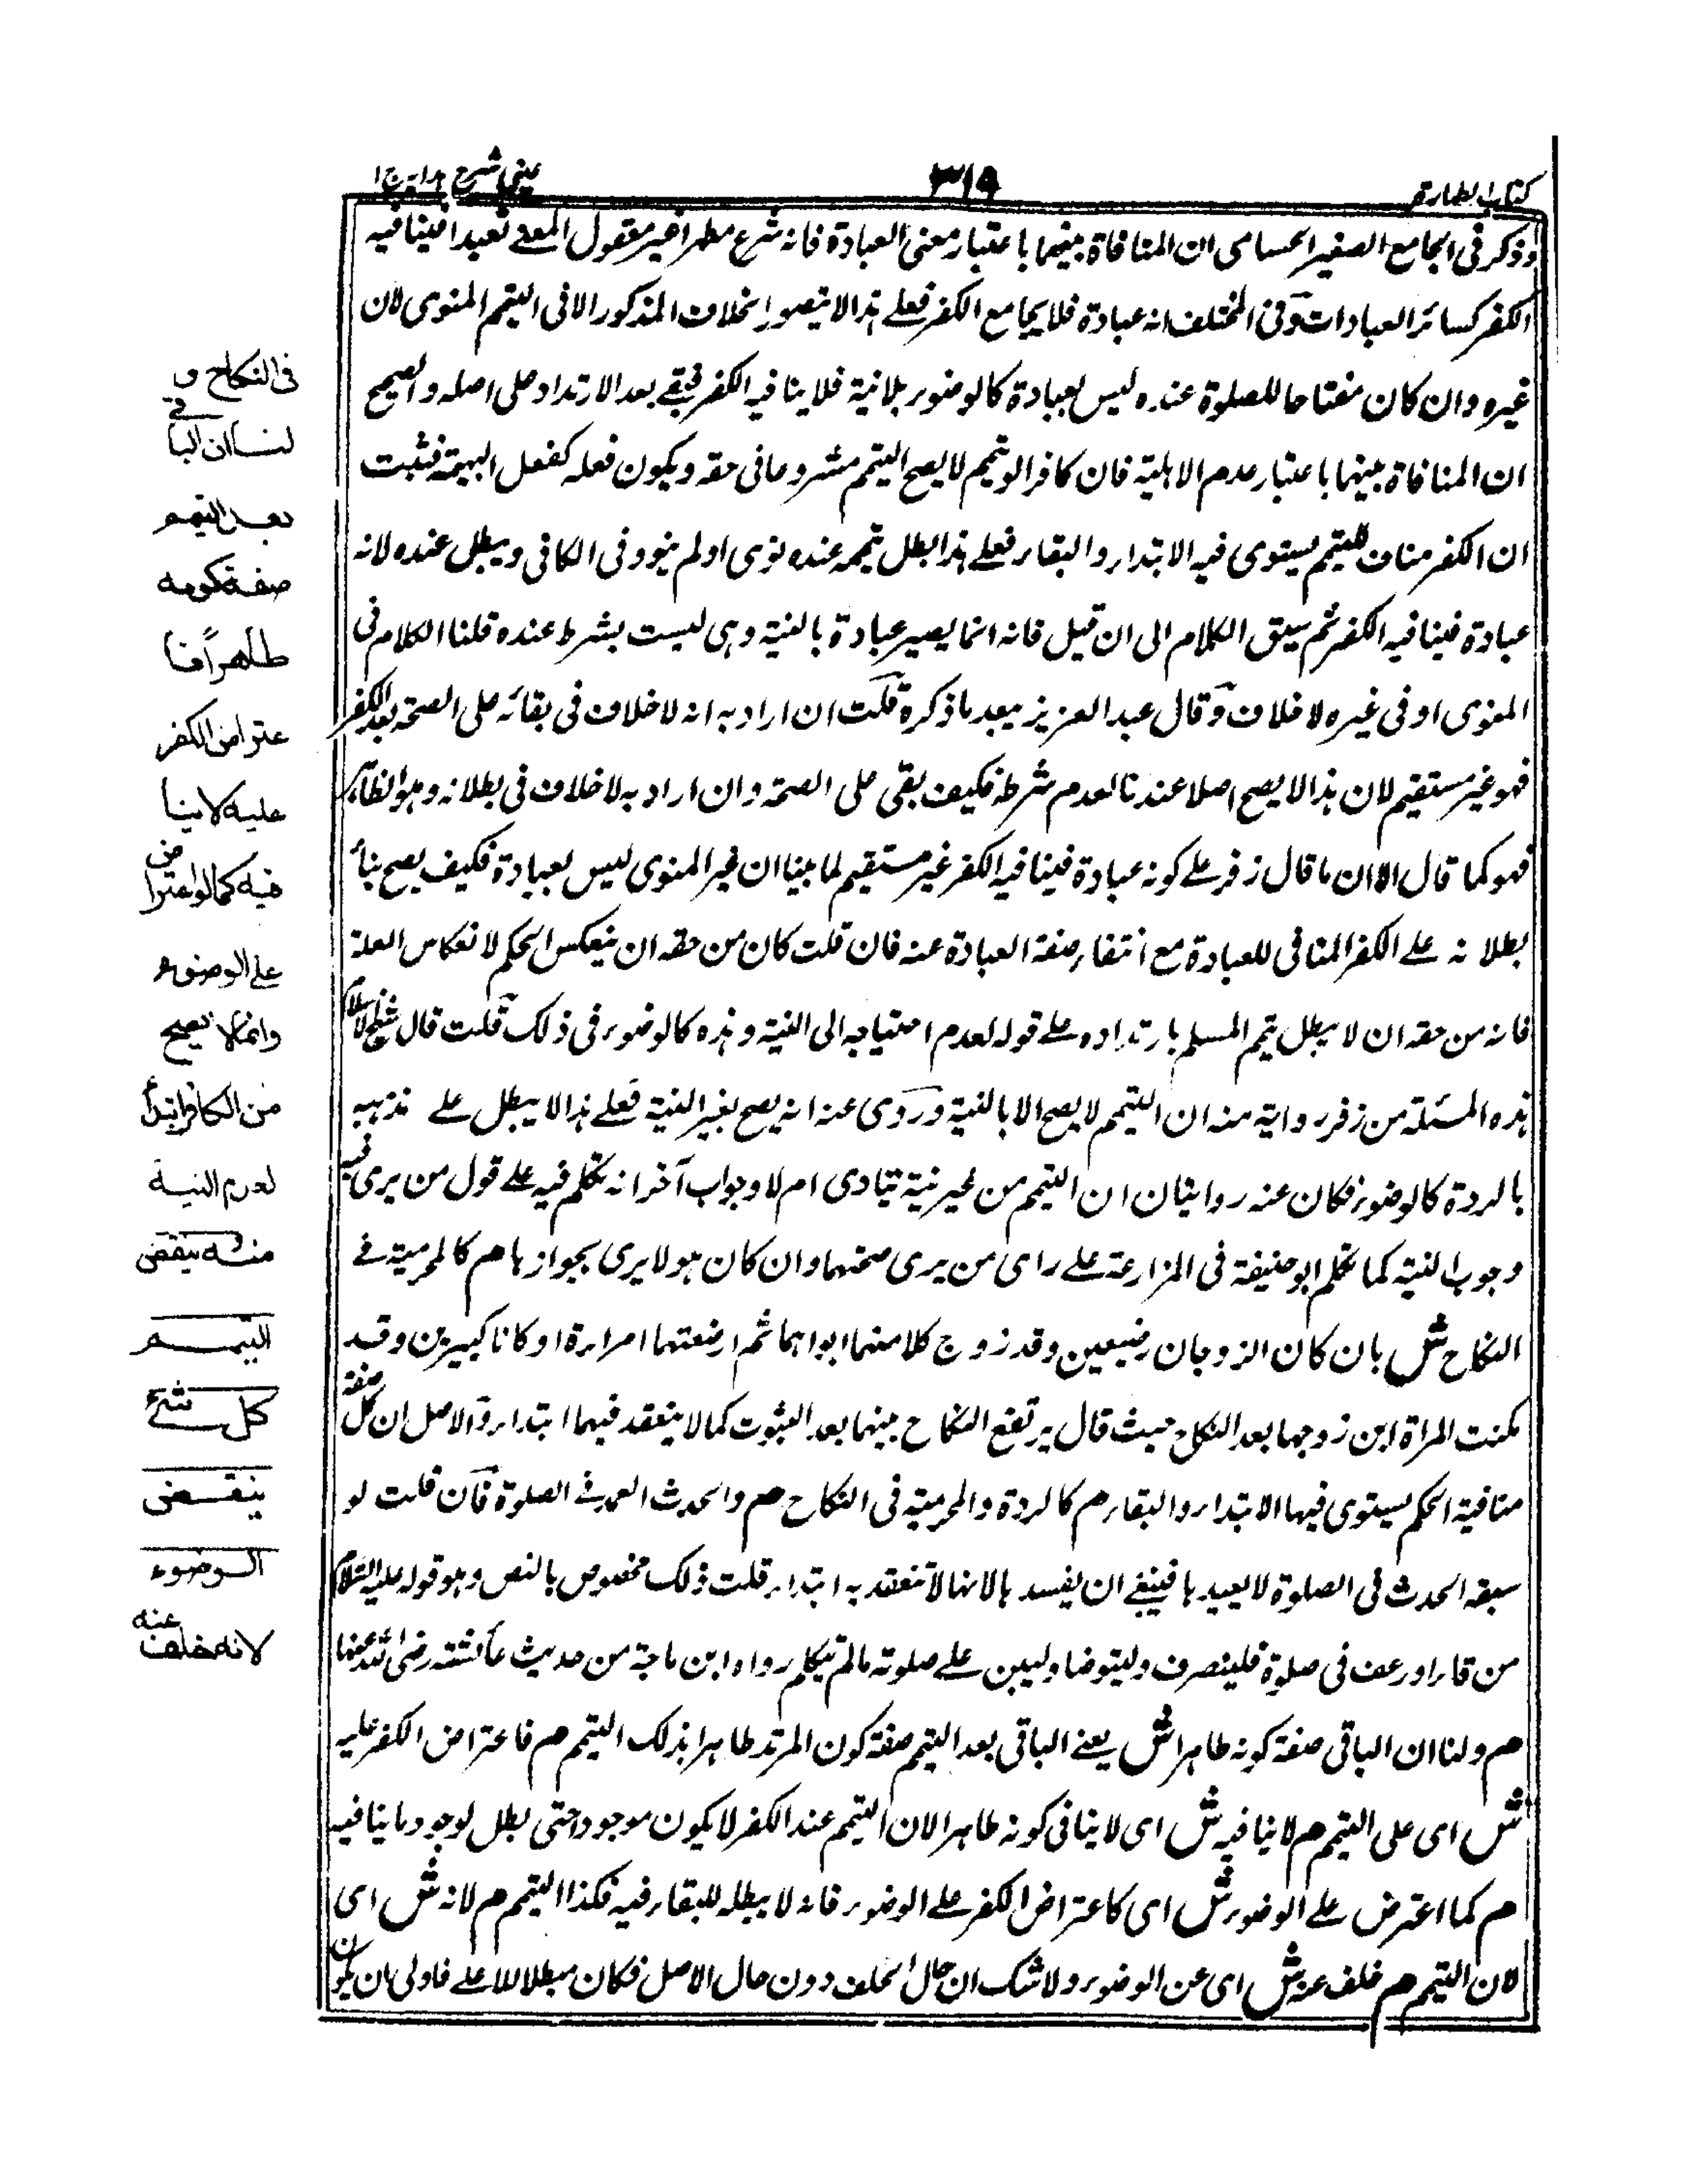 كتاب الطهارة
٣١٩
عيني شرح هداية ج ١
وذكر فى الجامع الصغير الحسامى ان المنافاة بينهما باعتبار معنى العبادة فانه شرع مطهرا غير معقول المعنے تعبدا فينافيه
الكفر كسائر العبادات وفى المختلف انه عبادة فلا يجامع الكفر فعلے هذا لا يتصور الخلاف المذكور الا فى التيمم المنوى لان
غيره وان كان مفتاحا للصلوة عنده ليس بعبادة كالوضوء بلا نية فلا ينافيه الكفر فيبقے بعد الارتداد على اصله والصحيح
ان المنافاة بينهما باعتبار عدم الاهلية فان كافرا لو تيمم لا يصح التيمم مشروعا فى حقه ويكون فعله كفعل البهيمة فثبت
ان الكفر مناف للتيمم يستوى فيه الابتداء والبقاء فعلے هذا بطل تيممه عنده نوى او لم ينو وفى الكافى ويبطل عنده لانه
عبادة فينافيه الكفر ثم سيق الكلام الى ان قيل فانه انما يصير عبادة بالنية وهى ليست بشرط عنده قلنا الكلام فى
المنوى او فى غيره لا خلاف وقال عبد العزيز بعد ما ذكره قلت ان اراد به انه لا خلاف فى بقائه على الصحة بعد الكفر
فهو غير مستقيم لان هذا لا يصح اصلا عندنا لعدم شرطه فكيف بقى على الصحة وان اراد به لا خلاف فى بطلانه وهو الظاهر
فهو كما قال الا ان ما قال زفر علے كونه عبادة فينافيه الكفر غير مستقيم لما بينا ان غير المنوى ليس بعبادة فكيف يصح بناء
بطلانه علے الكفر المنافى للعبادة مع انتفاء صفة العبادة عنه فان قلت كان من حقه ان ينعكس الحكم لانعكاس العلة
فانه من حقه ان لا يبطل تيمم المسلم بارتداده علے قوله لعدم احتياجه الى النية وهذه كالوضوء فى ذلك قلت قال شيخ الاسلام
هذه المسئلة من زفر رواية منه ان التيمم لا يصح الا بالنية وروى عنه انه يصح بغير النية فعلے هذا لا يبطل علے مذهبه
بالردة كالوضوء فكان عنه روايتان ان التيمم من غير نية يتادى ام لا وجواب آخر انه تكلم فيه علے قول من يرى فيه
وجوب النية كما تكلم ابو حنيفة فى المزارعة علے راى من يرى صحتها وان كان هو لا يرى بجوازها م كالمحرمية فے
النكاح ش بان كان الزوجان رضيعين وقد زوج كلا منهما ابواهما ثم ارضعتهما امراءة او كانا كبيرين وقد
مكنت المراة ابن زوجها بعد النكاح حيث قال يرتفع النكاح بينهما بعد الثبوت كما لا ينعقد فيهما ابتداء والاصل ان كل صفة
منافية الحكم يستوى فيها الابتداء والبقاء م كالردة والمحرمية فى النكاح م والحدث العمد فے الصلوة فان قلت لو
سبقه الحدث فى الصلوة لا يعيدها فينبغے ان يفسدها لانها لا تنعقد به ابتداء قلت ذلك مخصوص بالنص وهو قوله عليه السلام
من قاء او رعف فى صلوة فلينصرف وليتوضا وليبن علے صلوته ما لم يتكلم رواه ابن ماجة من حديث عائشة رضى الله عنها
م ولنا ان الباقى صفة كونه طاهرا ش يعنے الباقى بعد التيمم صفة كون المرتد طاهرا بذلك التيمم م فاعتراض الكفر عليه
ش اى على التيمم م لا ينافيه ش اى لا ينافى كونه طاهرا لان التيمم عند الكفر لا يكون موجودا حتى بطل لوجود ما ينافيه
م كما اعترض علے الوضوء ش اى كاعتراض الكفر علے الوضوء فانه لا يبطله للبقاء فيه فكذا التيمم م لانه ش اى
لان التيمم م خلف عنه ش اى عن الوضوء ولا شك ان حال الخلف دون حال الاصل فكان مبطلا للاعلے فاولى ان يكون
فى النكاح و
لنا ان الباقے
بعد التيمم
صفة كونه
طاهرًا فا
عتراض الكفر
عليه لا ينا
فيه كما لو اعترض
على الوضوء
وانما لا يصح
من الكافر ابتداءً
لعدم النية
منه ينقض
التيمم
كل شىء
ينقض
الوضوء
لانه خلف عنه